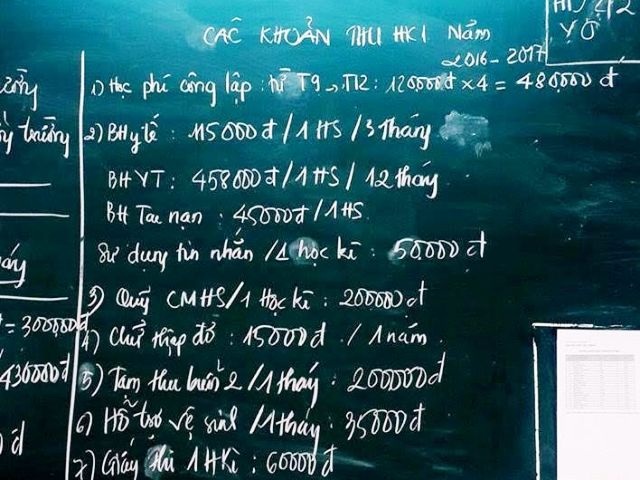 CÁC KHOẢN THU HKI Năm
2016-2017
1) Học phí công lập: từ T9 → T12: 120000đ x 4 = 480,000 đ
2) BH y tế : 115000 đ / 1 HS / 3 tháng
BHYT: 458000đ / 1 HS / 12 tháng
BH Tai nạn : 45000đ / 1HS
Sử dụng tin nhắn / 1 học kì : 50000 đ
3) Quỹ CMHS / 1 Học kì : 200000 đ
4) Chữ thập đỏ : 15000 đ / 1 năm
5) Tạm thu buổi 2 / 1 tháng : 200000đ
6) Hỗ trợ vệ sinh / 1 tháng : 35000đ
7) Giấy thi 1 HKì : 60000 đ
trường
áy
= 300,000đ
430000đ
đ